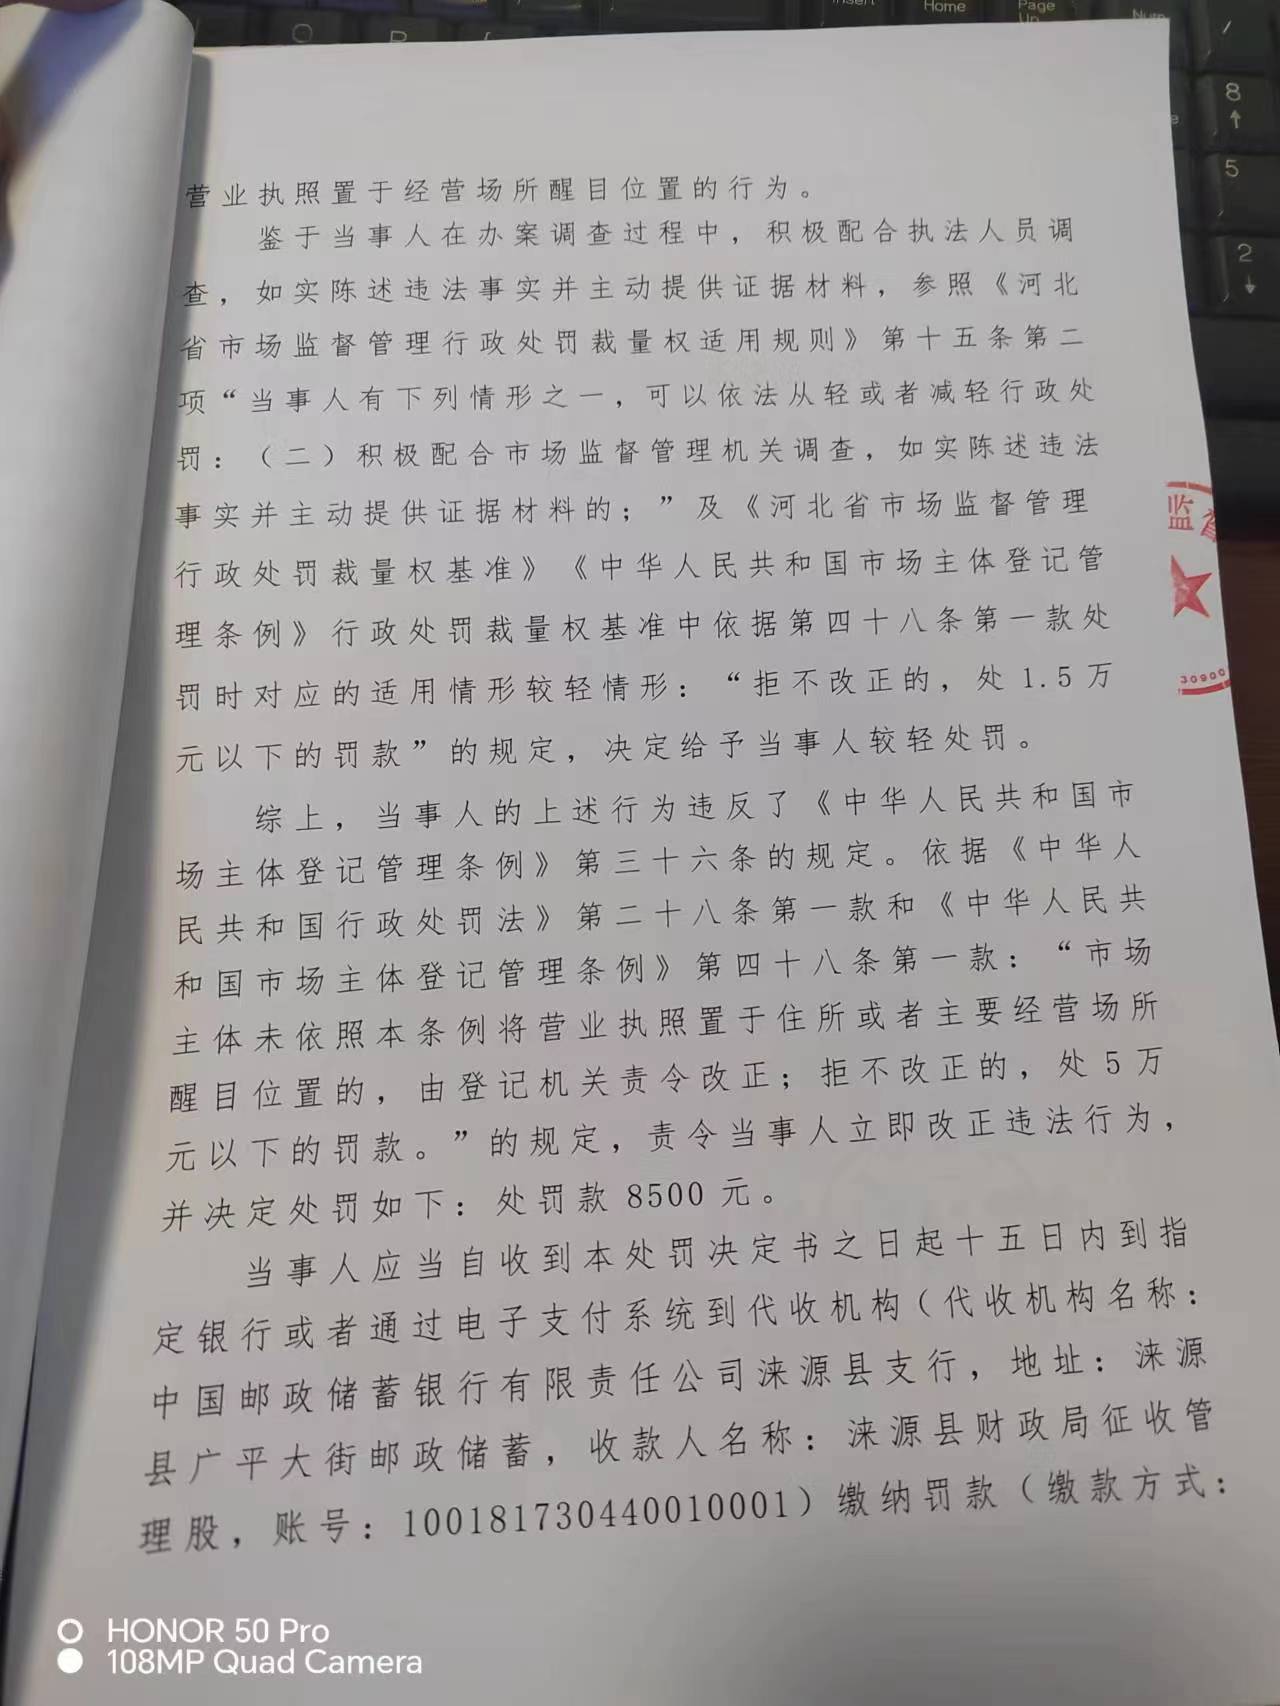 Insert
Home
Page
Up
Num
8
5
2
营业执照置于经营场所醒目位置的行为。
鉴于当事人在办案调查过程中，积极配合执法人员调
查，如实陈述违法事实并主动提供证据材料，参照《河北
省市场监督管理行政处罚裁量权适用规则》第十五条第二
项“当事人有下列情形之一，可以依法从轻或者减轻行政处
罚：（二）积极配合市场监督管理机关调查，如实陈述违法
事实并主动提供证据材料的；”及《河北省市场监督管理
行政处罚裁量权基准》《中华人民共和国市场主体登记管
理条例》行政处罚裁量权基准中依据第四十八条第一款处
罚时对应的适用情形较轻情形：“拒不改正的，处1.5万
元以下的罚款”的规定，决定给予当事人较轻处罚。
综上，当事人的上述行为违反了《中华人民共和国市
场主体登记管理条例》第三十六条的规定。依据《中华人
民共和国行政处罚法》第二十八条第一款和《中华人民共
和国市场主体登记管理条例》第四十八条第一款：“市场
主体未依照本条例将营业执照置于住所或者主要经营场所
醒目位置的，由登记机关责令改正；拒不改正的，处5万
元以下的罚款。”的规定，责令当事人立即改正违法行为，
并决定处罚如下：处罚款8500元。
当事人应当自收到本处罚决定书之日起十五日内到指
定银行或者通过电子支付系统到代收机构（代收机构名称：
中国邮政储蓄银行有限责任公司涞源县支行，地址：涞源
县广平大街邮政储蓄，收款人名称：涞源县财政局征收管
理股，账号：100181730440010001）缴纳罚款（缴款方式：
监督
30900
HONOR 50 Pro
108MP Quad Camera